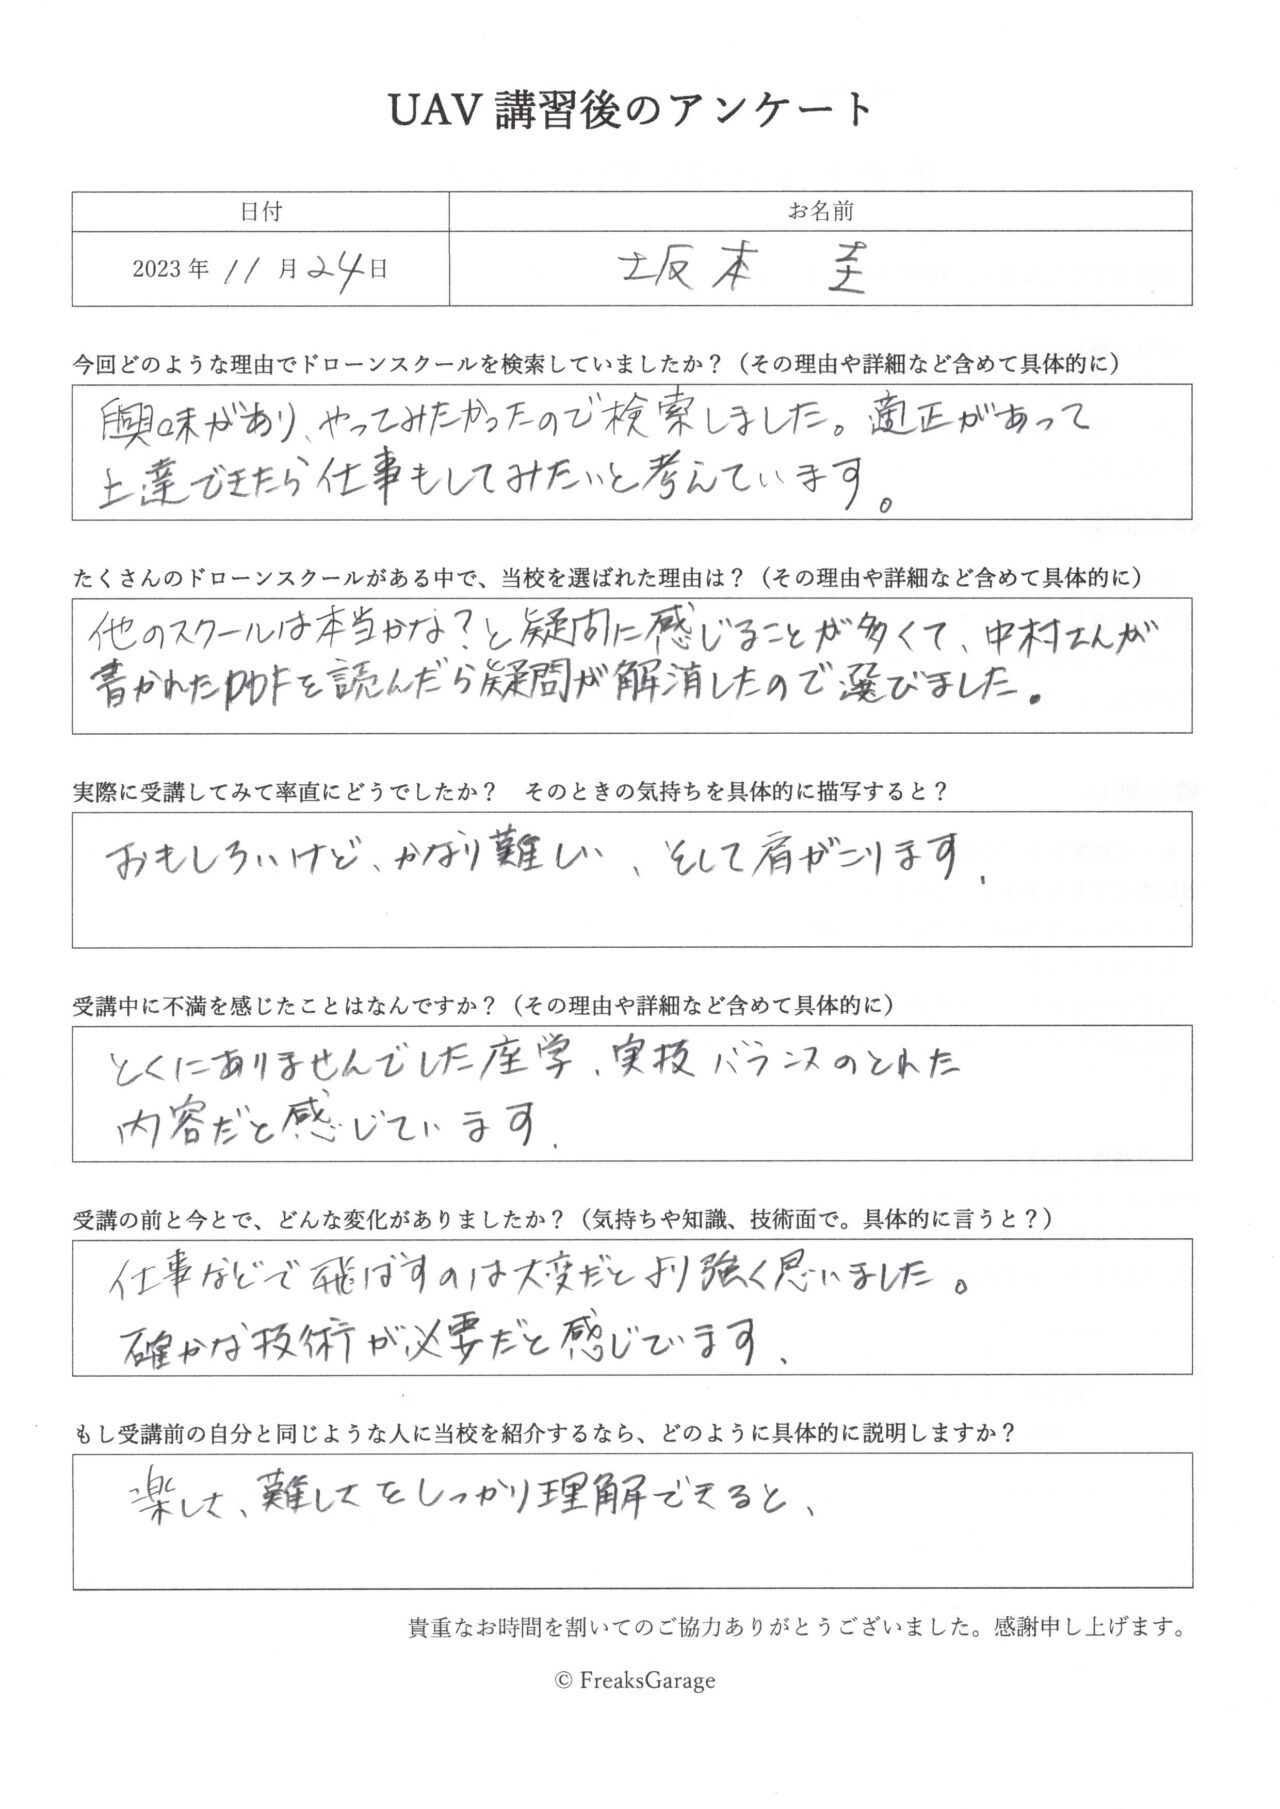 UAV 講習後のアンケート
日付
お名前
2023 年 11 月 24 日
坂本 圭
今回どのような理由でドローンスクールを検索していましたか？（その理由や詳細など含めて具体的に）
興味があり、やってみたかったので検索しました。適正があって
上達できたら仕事もしてみたいと考えています。
たくさんのドローンスクールがある中で、当校を選ばれた理由は？（その理由や詳細など含めて具体的に）
他のスクールは本当かな？と疑問に感じることが多くて、中村さんが
書かれたPDFを読んだら疑問が解消したので選びました.
実際に受講してみて率直にどうでしたか？　そのときの気持ちを具体的に描写すると？
おもしろいけど、かなり難しい、そして肩がこります.
受講中に不満を感じたことはなんですか？（その理由や詳細など含めて具体的に）
とくにありませんでした座学、実技バランスのとれた
内容だと感じています.
受講の前と今とで、どんな変化がありましたか？（気持ちや知識、技術面で。具体的に言うと？）
仕事などで飛ばすのは大変だとより強く思いました。
確かな技術が必要だと感じています、
もし受講前の自分と同じような人に当校を紹介するなら、どのように具体的に説明しますか？
楽しさ、難しさをしっかり理解できると、
貴重なお時間を割いてのご協力ありがとうございました。感謝申し上げます。
© FreaksGarage